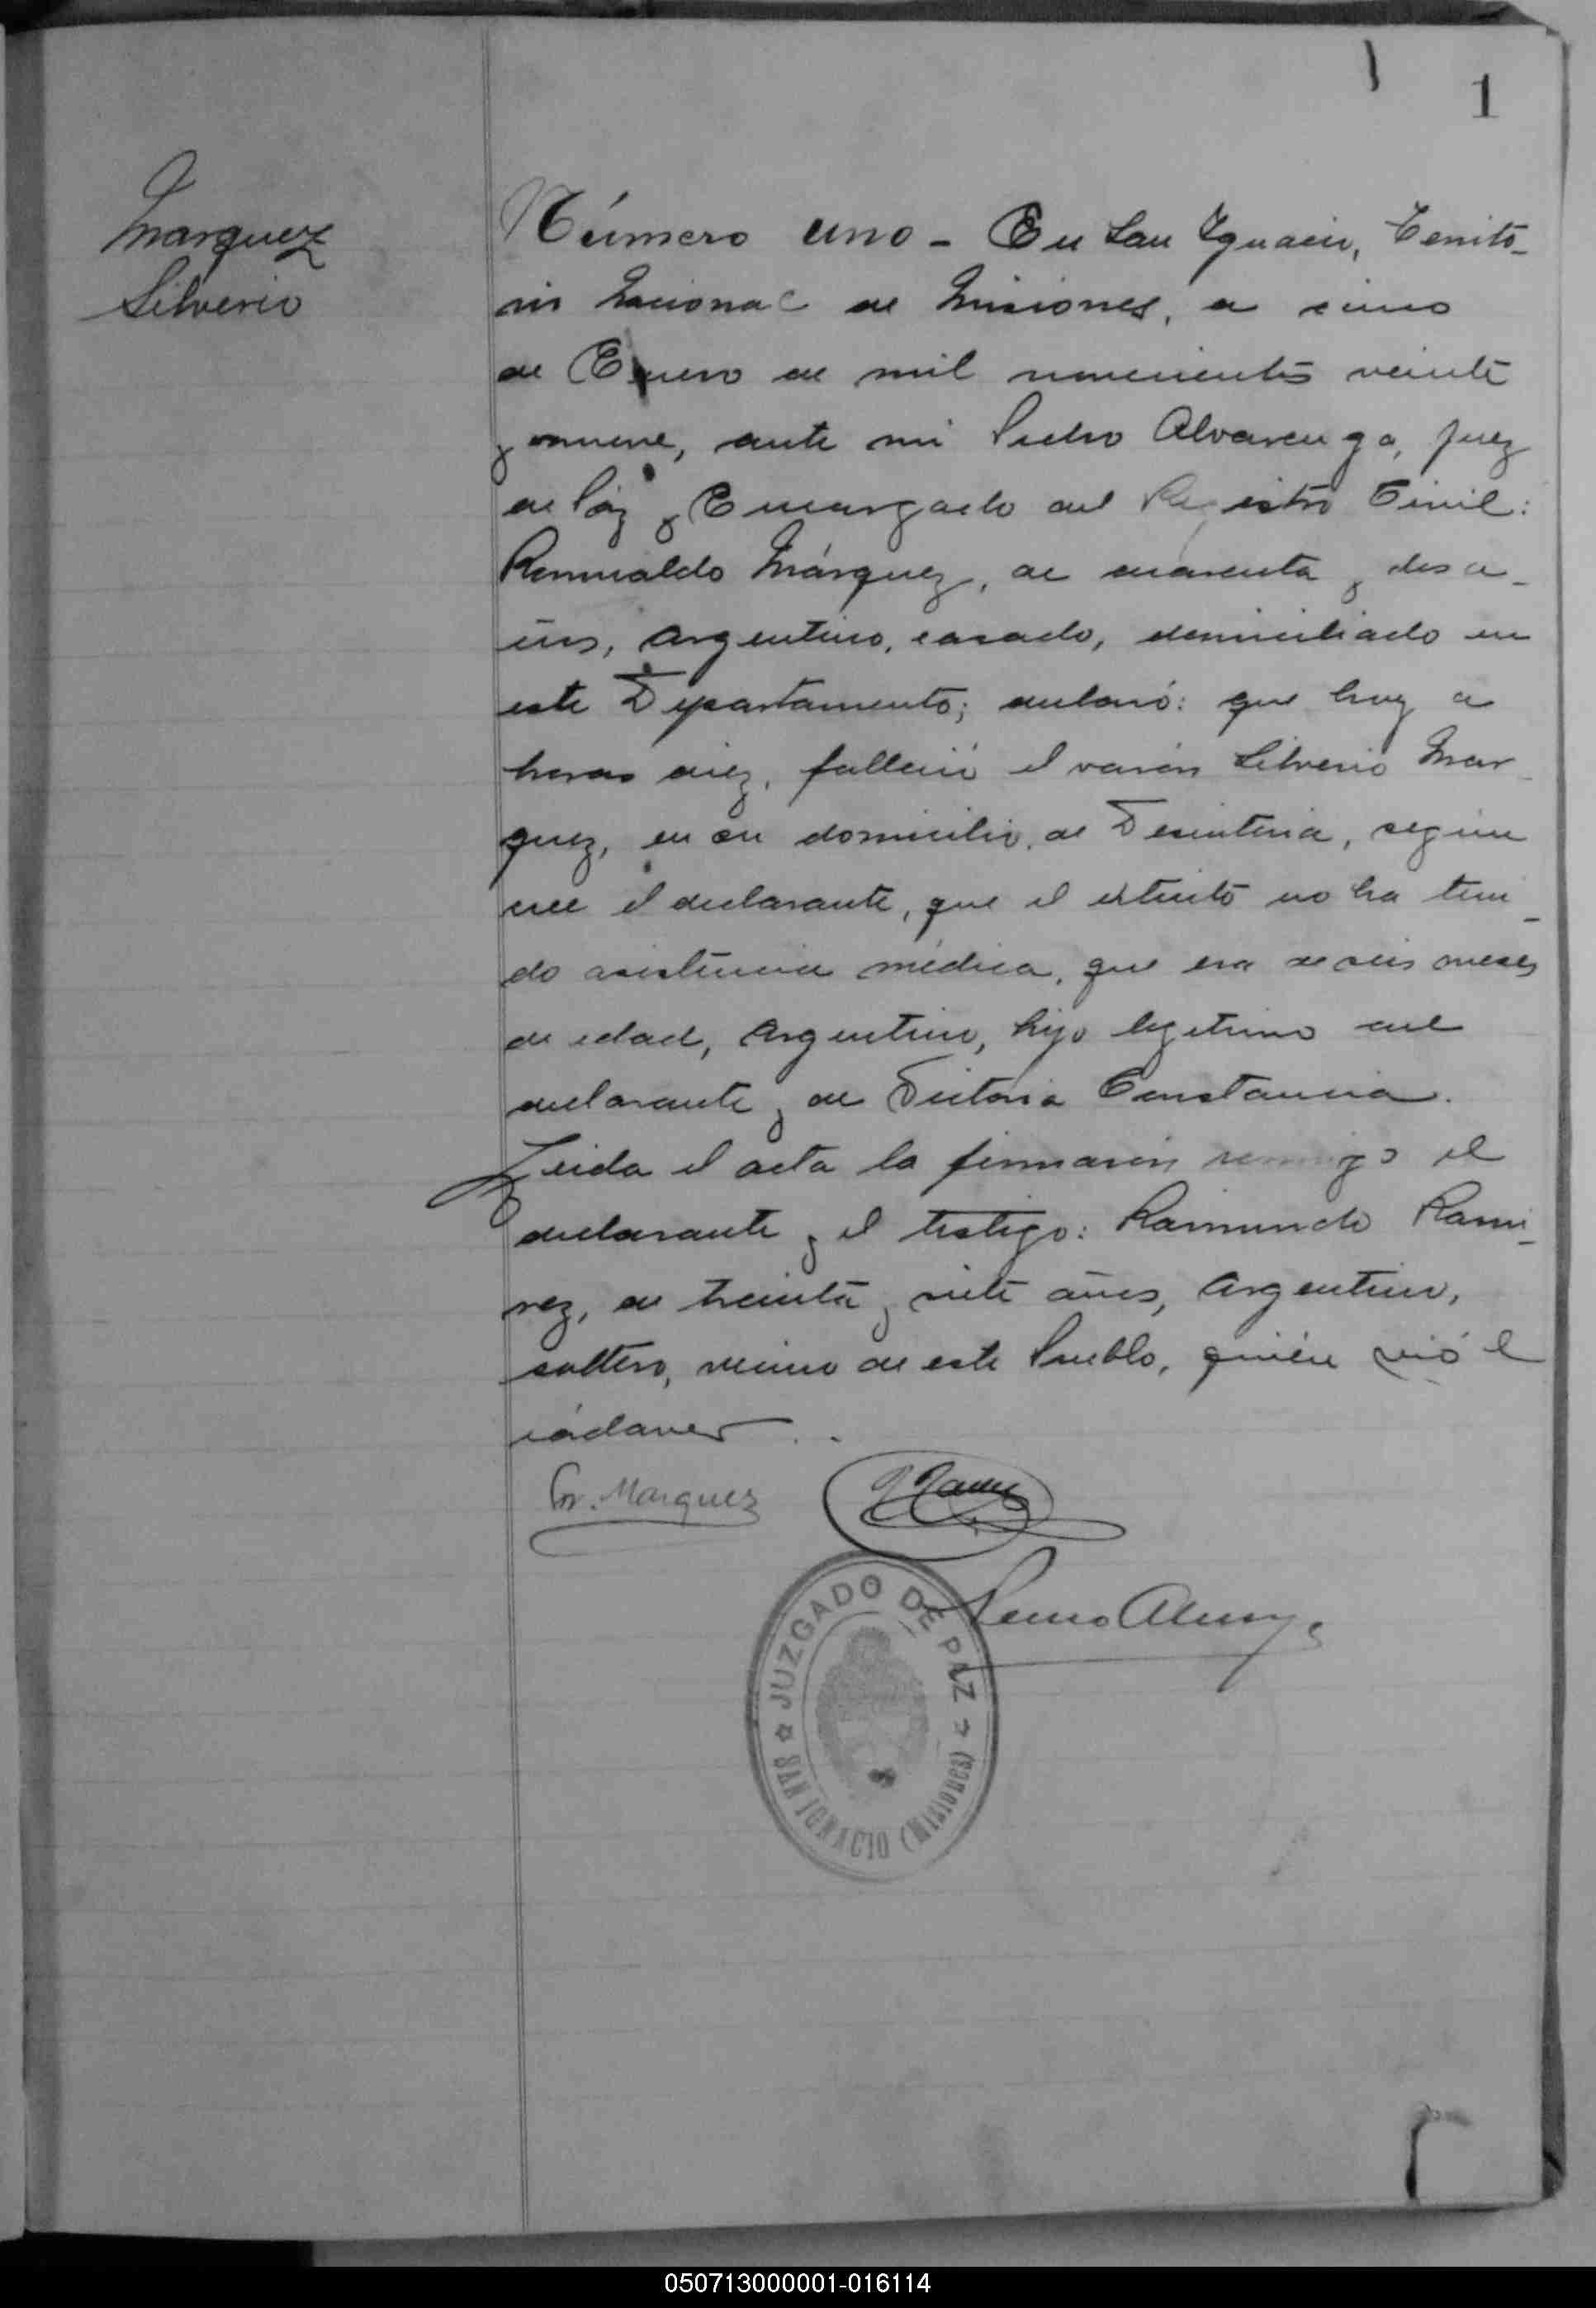 1
Marquez
Silverio
Número uno - En San Ignacio, Territo-
rio Nacional de Misiones, a cinco
de Enero de mil novecientos veinte
y nueve, ante mi Pedro Alvarenga, Juez
de Páz y Encargado del Registro Civil:
Romualdo Márquez, de cuarenta y dos a-
ños, Argentino, casado, domiciliado en
este Departamento; declaró: que hoy a
horas diez, falleció el varón Silverio Mar-
quez, en su domicilio, de Desinteria, según
cree el declarante, que el extinto no ha teni-
do asistencia médica, que era de seis meses
de edad, Argentino, hijo legitimo del
declarante y de Victoria Constancia.
Leida el acta la firmarón conmigo el
declarante y el testigo: Raimundo Rami-
rez, de treinta y siete años, Argentino,
soltero, vecino de este Pueblo, quién vió el
cádaver
Marquez
JUZGADO DE PAZ
SAN IGNACIO (MISIONES)
050713000001-016114